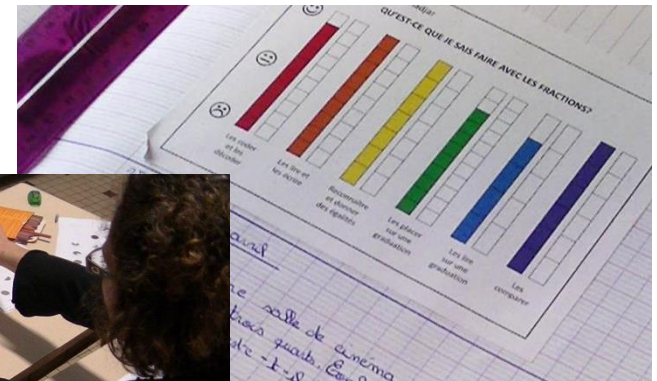 QU'EST-CE QUE JE SAIS FAIRE AVEC LES FRACTIONS?
Les coder
et les
décoder
Les lire et
les écrire
Reconnaître
et donner
des égalités
Les placer
sur une
graduation
Les lire
sur une
graduation
Les
comparer
salle de cinéma
trois quarts.